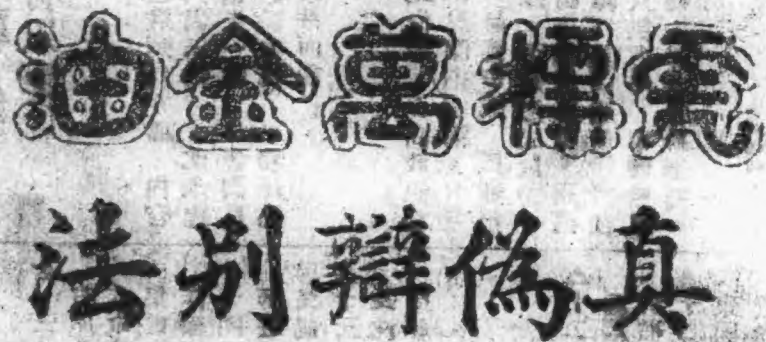 虎標萬金油
真偽辯別法